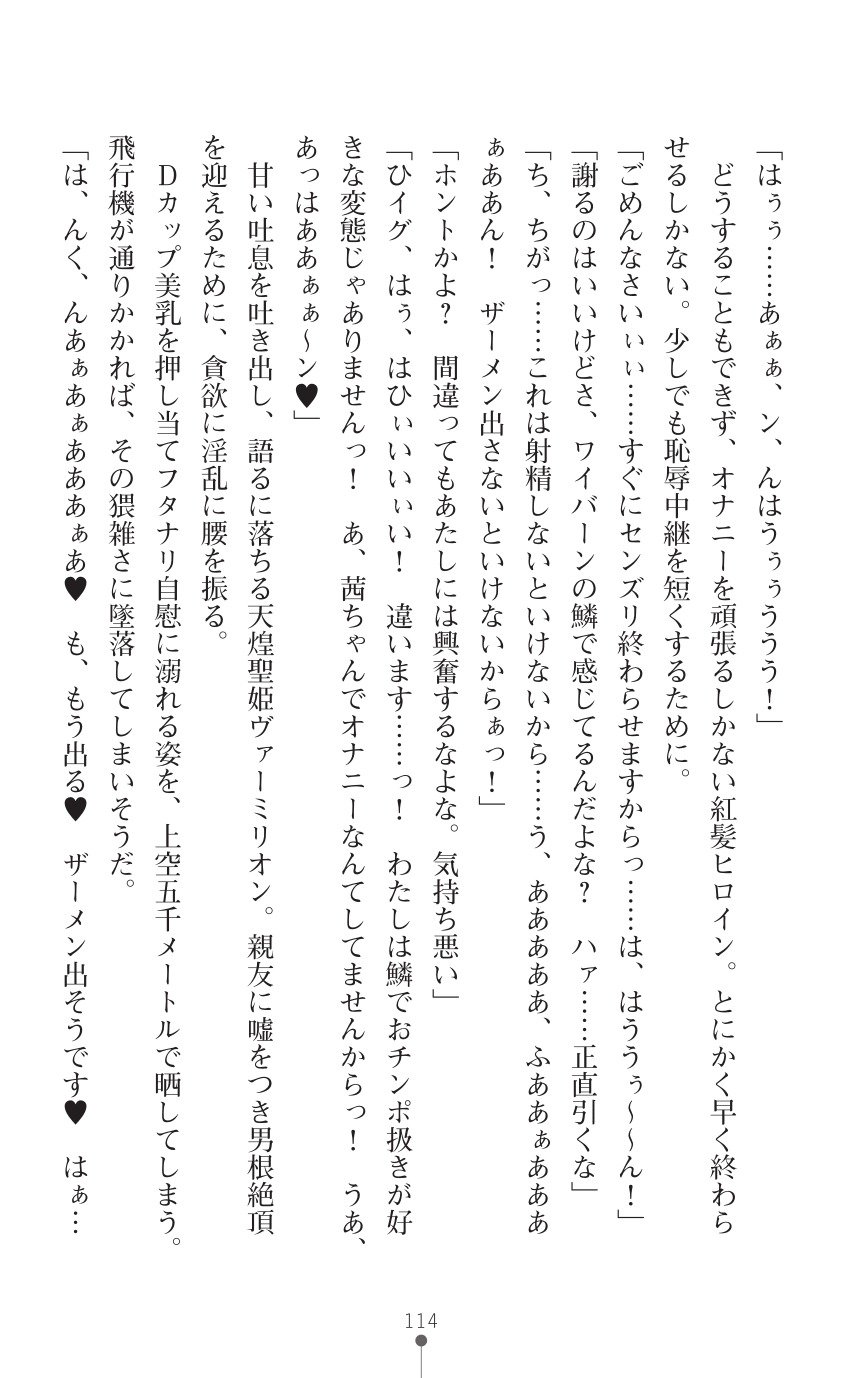 「はぅぅ……あぁぁ、ン、んはうぅぅううう！」
　どうすることもできず、オナニーを頑張るしかない紅髪ヒロイン。とにかく早く終わら
せるしかない。少しでも恥辱中継を短くするために。
「ごめんなさいぃぃ……すぐにセンズリ終わらせますからっ……は、はううぅ～～ん！」
「謝るのはいいけどさ、ワイバーンの鱗で感じてるんだよな？　ハァ……正直引くな」
「ち、ちがっ……これは射精しないといけないから……う、あああああ、ふああぁあああ
ぁああん！　ザーメン出さないといけないからぁっ！」
「ホントかよ？　間違ってもあたしには興奮するなよな。気持ち悪い」
「ひイグ、はぅ、はひぃいいぃい！　違います……っ！　わたしは鱗でおチンポ扱きが好
きな変態じゃありませんっ！　あ、茜ちゃんでオナニーなんてしてませんからっ！　うあ、
あっはああぁぁ～ン♥」
　甘い吐息を吐き出し、語るに落ちる天煌聖姫ヴァーミリオン。親友に嘘をつき男根絶頂
を迎えるために、貪欲に淫乱に腰を振る。
　Ｄカップ美乳を押し当てフタナリ自慰に溺れる姿を、上空五千メートルで晒してしまう。
飛行機が通りかかれば、その猥雑さに墜落してしまいそうだ。
「は、んく、んあぁあぁあああぁあ♥　も、もう出る♥　ザーメン出そうです♥　はぁ…
114